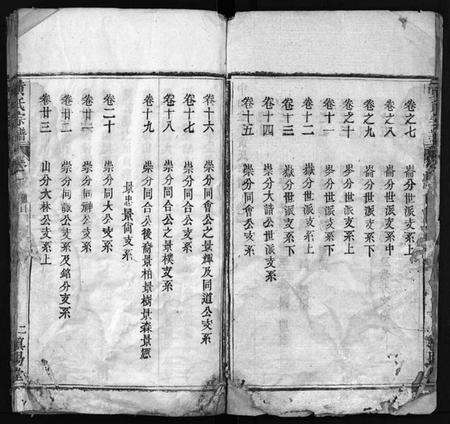 卷之七 崙分世派支系上
卷之八 崙分世派支系中
卷之九 崙分世派支系下
卷之十 岑分世派支系上
卷十一 岑分世派支系下
卷十二 嶽分世派支系上
卷十三 嶽分世派支系下
卷十四 崇分大諧公世派支系
卷十五 崇分同會公支系
卷十六 崇分同會公之景輝及同道公支系
卷十七 崇分同合公支系
卷十八 崇分同合公之景樸支系
卷十九 崇分同合公後裔景柏景樹景森景
景忠景 支系
卷二十 崇分同大公支系
卷廿一 崇分同 公支系
卷廿二 崇分同 公支系及銘分支系
卷廿三 山分大林公支系上
黃氏宗譜
二